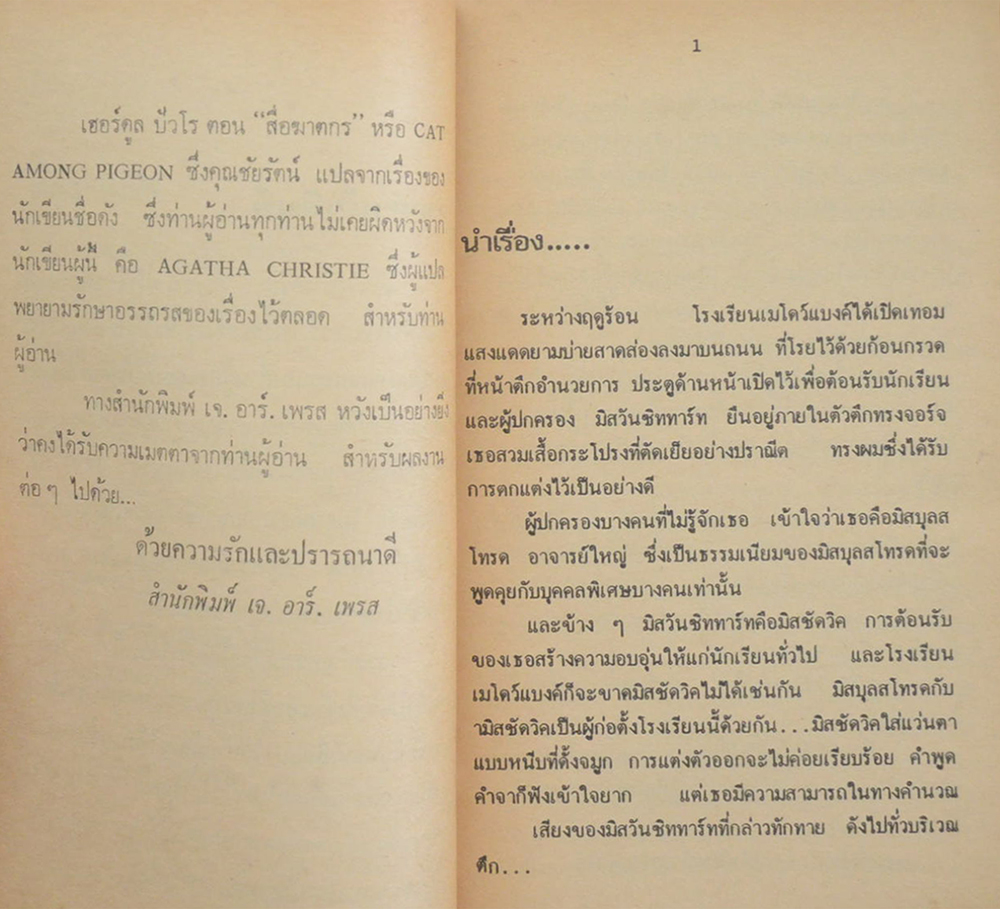 เฮอร์คูล ปัวโร ตอน “สื่อฆาตกร” หรือ CAT
AMONG PIGEON ซึ่งคุณชัยรัตน์ แปลจากเรื่องของ
นักเขียนชื่อดัง ซึ่งท่านผู้อ่านทุกท่านไม่เคยผิดหวังจาก
นักเขียนผู้นี้ คือ AGATHA CHRISTIE ซึ่งผู้แปล
พยายามรักษาอรรถรสของเรื่องไว้ตลอด สำหรับท่าน
ผู้อ่าน
ทางสำนักพิมพ์ เจ. อาร์. เพรส หวังเป็นอย่างยิ่ง
ว่าคงได้รับความเมตตาจากท่านผู้อ่าน สำหรับผลงาน
ต่อๆ ไปด้วย...
ด้วยความรักและปรารถนาดี
สำนักพิมพ์ เจ. อาร์. เพรส
1
นำเรื่อง.....
ระหว่างฤดูร้อน โรงเรียนเมโดว์แบงค์ได้เปิดเทอม
แสงแดดยามบ่ายสาดส่องลงมาบนถนน ที่โรยไว้ด้วยก้อนกรวด
ที่หน้าตึกอำนวยการ ประตูด้านหน้าเปิดไว้เพื่อต้อนรับนักเรียน
และผู้ปกครอง มิสวันชิททาร์ท ยืนอยู่ภายในตัวตึกทรงจอร์จ
เธอสวมเสื้อกระโปรงที่ตัดเย็ยอย่างปราณีต ทรงผมซึ่งได้รับ
การตกแต่งไว้เป็นอย่างดี
ผู้ปกครองบางคนที่ไม่รู้จักเธอ เข้าใจว่าเธอคือมิสบุลส
โทรด อาจารย์ใหญ่ ซึ่งเป็นธรรมเนียมของมิสบุลสโทรดที่จะ
พูดคุยกับบุคคลพิเศษบางคนเท่านั้น
และข้าง ๆ มิสวันชิททาร์ทคือมิสชัดวิค การต้อนรับ
ของเธอสร้างความอบอุ่นให้แก่นักเรียนทั่วไป และโรงเรียน
เมโดว์แบงค์ก็จะขาดมิสชัดวิคไม่ได้เช่นกัน มิสบุลสโทรดกับ
ามิสชัดวิคเป็นผู้ก่อตั้งโรงเรียนนี้ด้วยกัน...มิสชัดวิคใส่แว่นตา
แบบหนีบที่ดั้งจมูก การแต่งตัวออกจะไม่ค่อยเรียบร้อย คำพูด
คำจาก็ฟังเข้าใจยาก แต่เธอมีความสามารถในทางคำนวณ
เสียงของมิสวันชิททาร์ทที่กล่าวทักทาย ดังไปทั่วบริเวณ
ตึก...